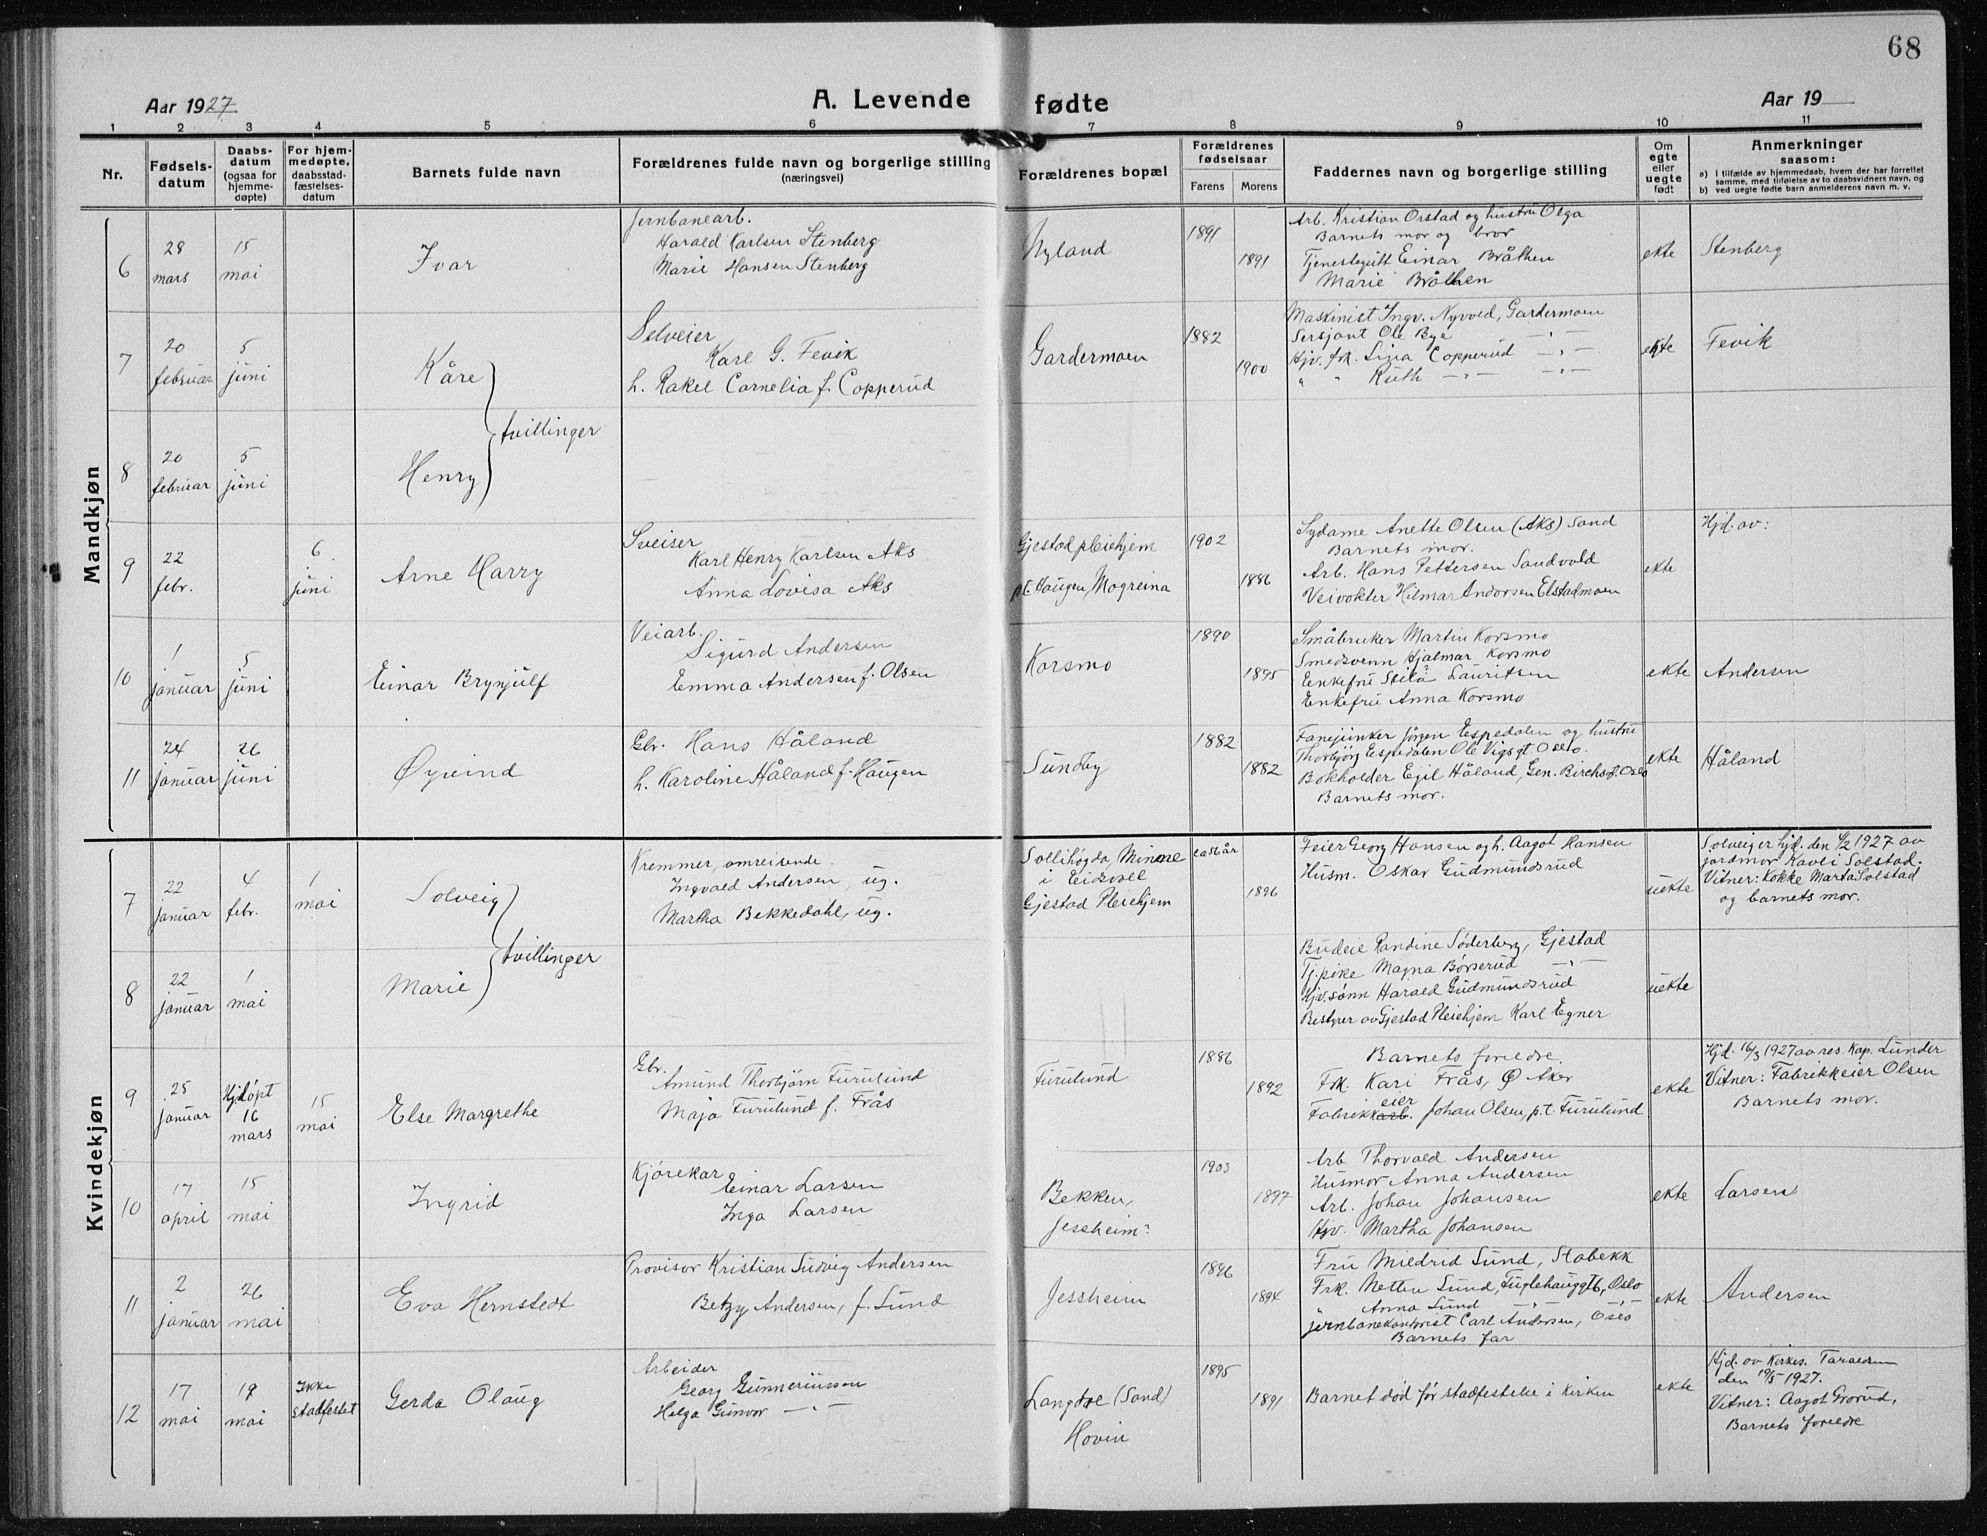 68
Aar 1927
A. Levende fødte
Aar 19
1 2 3 4 5 6 7 8 9 10 11
Nr.
Fødsels-
datum
Daabs-
datum
(ogsaa for
hjemme-
døpte)
For hjem-
medøpte,
daabsstad-
fæstelses-
datum
Barnets fulde navn
Forældrenes fulde navn og borgerlige stilling
(næringsvei)
Forældrenes bopæl
Forældrenes
fødselsaar
Farens Morens
Faddernes navn og borgerlige stilling
Om
egte
eller
uegte
født
Anmerkninger
saasom:
a) i tilfælde av hjemmedaab, hvem der har forrettet
samme, med tilføielse av to daabsvidners navn, og
b) ved uegte fødte barn anmelderens navn m. v.
Mandkjøn
6
28
mars
15
mai
Ivar
Jernbanearb.
Harald Karlsen Stenberg
Marie Hansen Stenberg
Nyland
1891
1891
Arb. Kristian Orstad og hustru Olga
Barnets mor og bror
Tjenestegutt Einar Bråthen
Marie Bråthen
ekte
Stenberg
7
20
februar
5
juni
Kåre
Selveier
Karl G. Fevik
h. Rakel Cornelia f. Copperud
Gardermoen
1882
1900
Maskinist Ingv. Nyvold, Gardermoen
Sersjant Ole Bye — " —
Hjv. frk. Lina Copperud — " —
" " Ruth — " — — " —
ekte
Fevik
tvillinger
8
20
februar
5
juni
Henry
9
22
febr.
6
juni
Arne Harry
Sveiser
Karl Henry Karlsen Aks
Anna Lovisa Aks
Gjestad pleiehjem
p.t. Haugen, Mogreina
1902
1886
Sydame Anette Olsen (Aks) Sand
Barnets mor.
Arb. Hans Pettersen Sandvold
Veivokter Hilmar Andorsen Elstadmoen
ekte
Hjd. av:
10
1
januar
5
juni
Einar Brynjulf
Veiarb.
Sigurd Andersen
Emma Andersen f. Olsen
Korsmo
1890
1895
Småbruker Martin Korsmo
Smedsvenn Hjalmar Korsmo
Enkefru Lauritsen
Enkefru Anna Korsmo
ekte
Andersen
11
24
januar
26
juni
Øyvind
Gbr. Hans Håland
h. Karoline Håland f. Haugen
Sundby
1882
1882
Fanejunker Jørgen Espedalen og hustru
Thorbjørg Espedalen Ole Vigsgt. Oslo.
Bokholder Egil Håland, Gen. Birchsgt. Oslo
Barnets mor.
ekte
Håland
Kvindekjøn
7
22
januar
4
febr.
1
mai
Solveig
Kremmer, omreisende.
Ingvald Andersen, ug.
Martha Bekkedahl, ug.
Sollihøgda, Minne
i Eidsvoll
Gjestad Pleiehjem
ca 56 år
1896
Feier Georg Hansen og h. Aagot Hansen
Husm. Oskar Gudmundsrud
uekte
Solveig er hjd. den 4/2 1927 av
jordmor Kavli Solstad.
Vitner: Kokke Marta Solstad
og barnets mor.
tvillinger
8
22
januar
1
mai
Marie
Budeie Randine Søderberg, Gjestad
Tj.pike Magna Børserud — " —
Hjv. sønn Harald Gudmundsrud
Bestyrer av Gjestad Pleiehjem Karl Egner
uekte
9
25
januar
Hj.døpt
16
mars
15
mai
Else Margrethe
Gbr.
Amund Thorbjørn Furulund
Maja Furulund f. Frås
Furulund
1886
1892
Barnets foreldre.
Frk. Kari Frås, Ø Aker
eier
Fabrikkarb. Johan Olsen, p.t. Furulund
ekte
Hjd. 16/3 1927 av res. kap. Lunder
Vitner: Fabrikkeier Olsen
Barnets mor.
10
17
april
15
mai
Ingrid
Kjørekar
Einar Larsen
Inga Larsen
Bekken,
Jessheim
1903
1897
Arb. Thorvald Andersen
Husmor Anna Andersen
Arb. Johan Johansen
Hjv. Martha Johansen
ekte
Larsen
11
2
januar
26
mai
Eva Hernstedt
Provisor Kristian Ludvig Andersen
Betzy Andersen, f. Lund
Jessheim
1896
1894
Fru Mildrid Lund, Stabekk
Frk. Netten Lund, Fuglehauggt 6, Oslo
" Anna Lund — " — — " —
jernbanekontorist Carl Andersen, Oslo
Barnets far
ekte
Andersen
12
17
mai
19
mai
Ikke
stadfestet
Gerda Olaug
Arbeider
Georg Gunneriussen
Helga Gunvor — " —
Langdøe (Sand)
Hovin
1895
1891
Barnet død før stadfestelse i kirken
ekte
Hjd. av Kirkes. Taraldsen
den 19/5 1927.
Vitner: Aagot Grorud,
Barnets foreldre